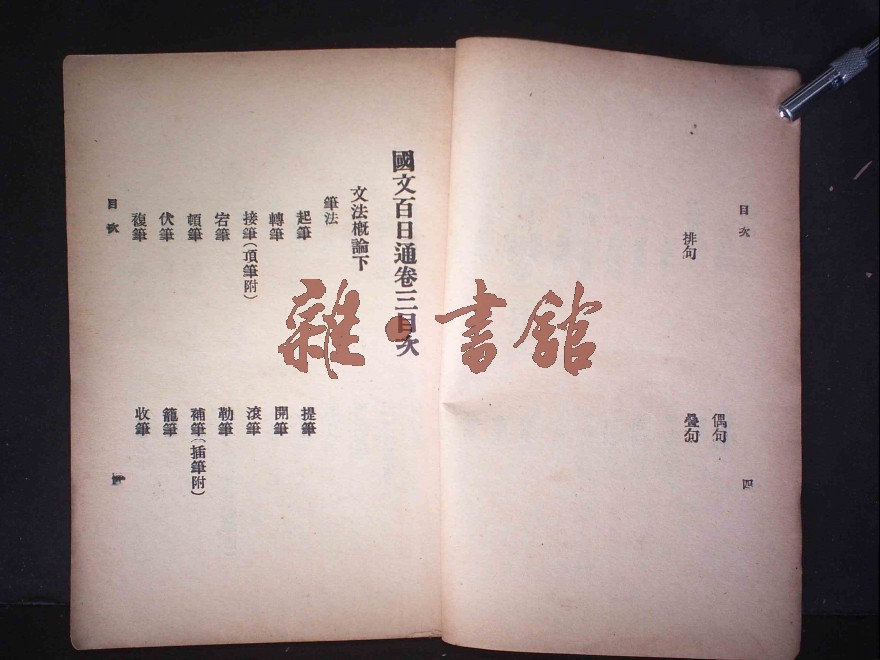 目次 四
偶句
排句 疊句
國文百日通卷三目次
文法概論下
筆法
起筆 提筆
轉筆 開筆
接筆(頂筆附) 滾筆
宕筆 勒筆
頓筆 補筆(插筆附)
伏筆 籠筆
複筆 收筆
目次
雜·書館